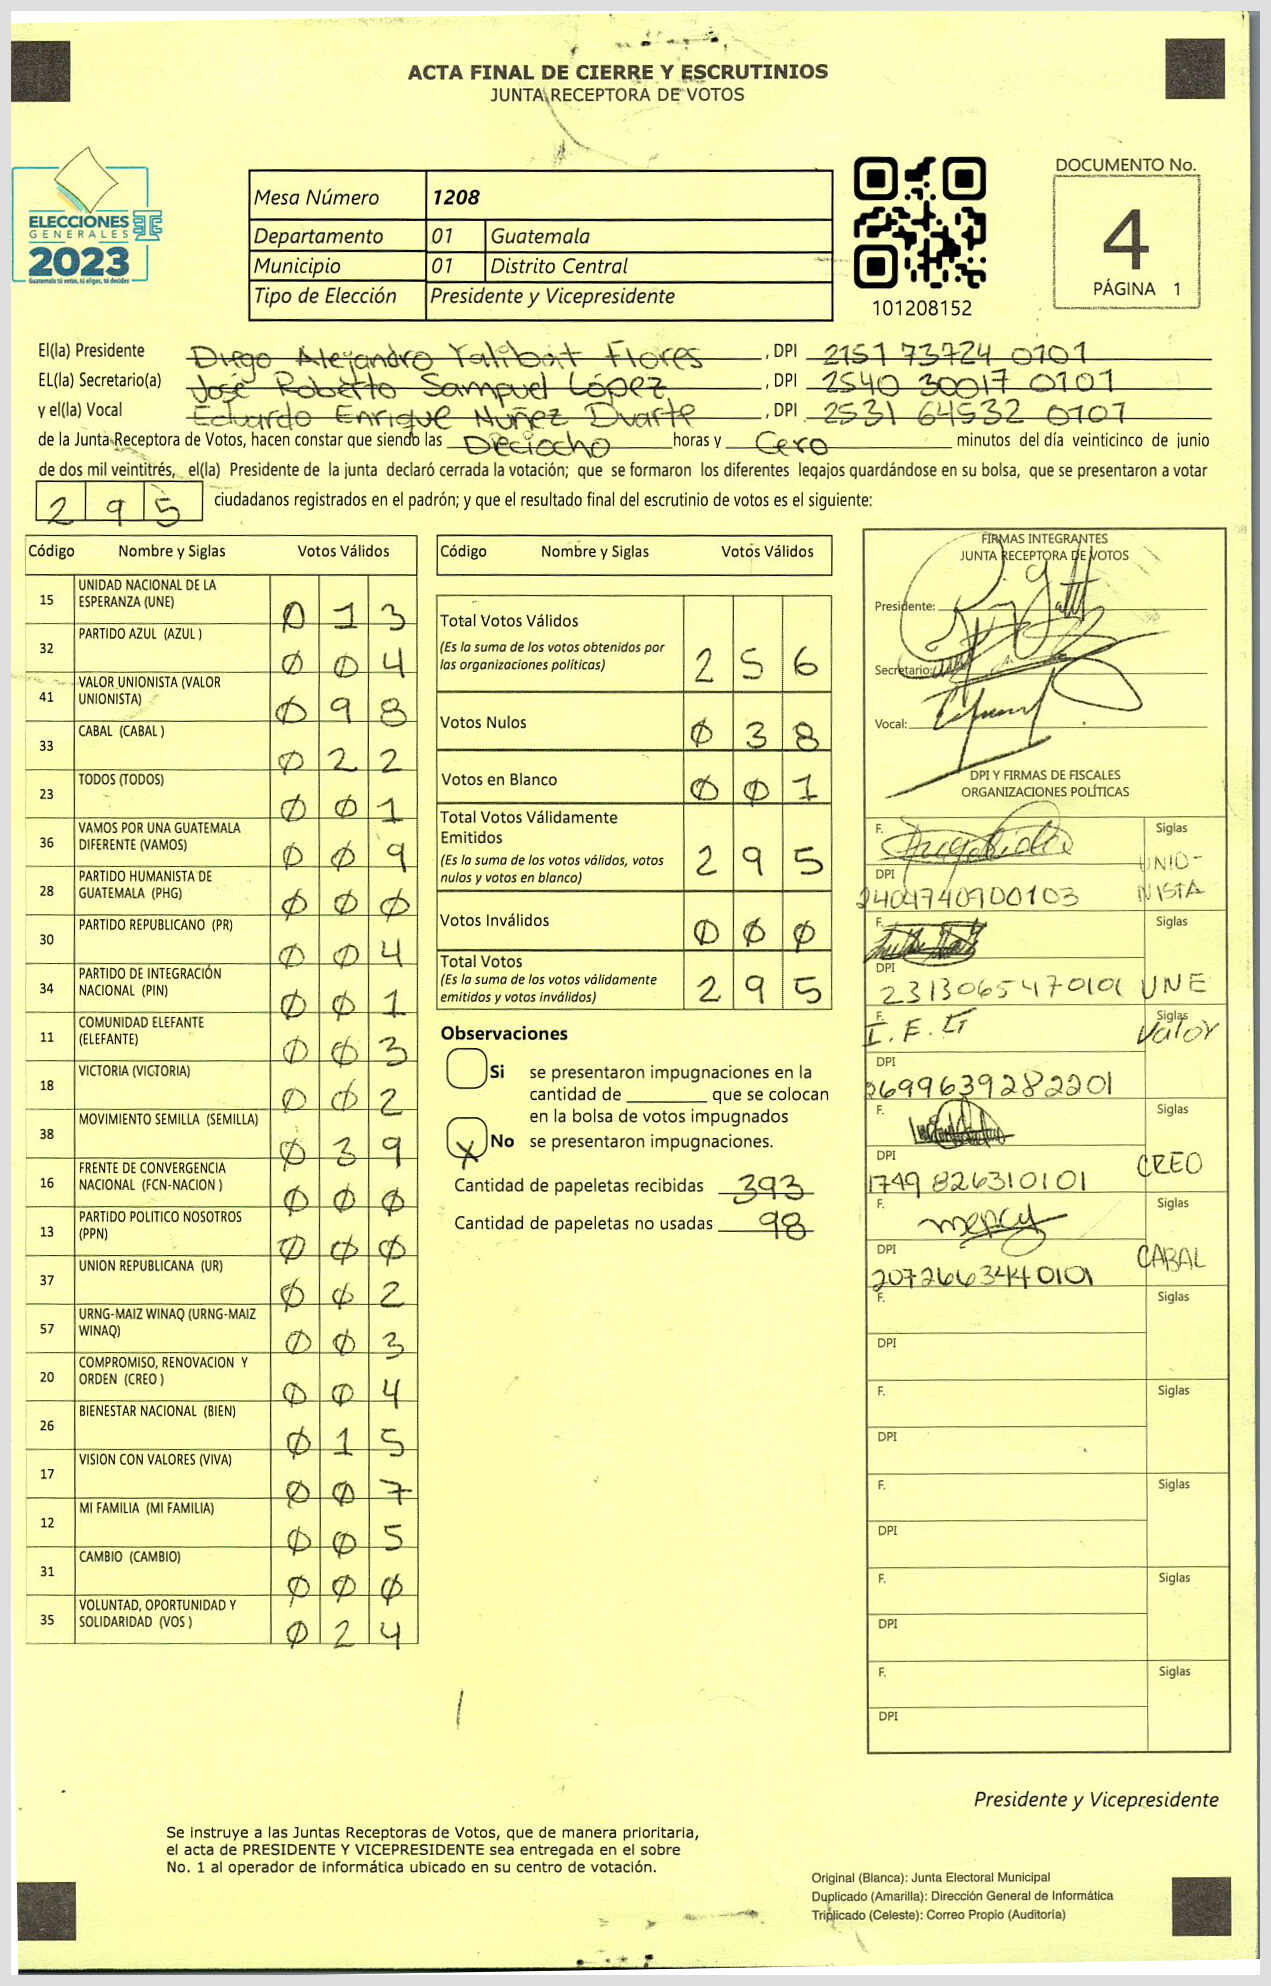 ACTA FINAL DE CIERRE Y ESCRUTINIOS
JUNTA RECEPTORA DE VOTOS
ELECCIONES
GENERALES
2023
Guatemala tú votas, tú eliges, tú decides
Mesa Número 1208
Departamento 01 Guatemala
Municipio 01 Distrito Central
Tipo de Elección Presidente y Vicepresidente
101208152
DOCUMENTO No.
4
PÁGINA 1
El(la) Presidente Diego Alejandro Yalibat Flores, DPI 2151 73724 0101
EL(la) Secretario(a) José Roberto Sampuel López, DPI 2540 30017 0101
y el(la) Vocal Eduardo Enrique Nuñez Duarte, DPI 2531 64532 0101
de la Junta Receptora de Votos, hacen constar que siendo las Dieciocho horas y Cero minutos del día veinticinco de junio
de dos mil veintitrés, el(la) Presidente de la junta declaró cerrada la votación; que se formaron los diferentes legajos guardándose en su bolsa, que se presentaron a votar
295 ciudadanos registrados en el padrón; y que el resultado final del escrutinio de votos es el siguiente:
Código Nombre y Siglas Votos Válidos
15 UNIDAD NACIONAL DE LA ESPERANZA (UNE) 013
32 PARTIDO AZUL (AZUL ) 004
41 VALOR UNIONISTA (VALOR UNIONISTA) 098
33 CABAL (CABAL ) 022
23 TODOS (TODOS) 001
36 VAMOS POR UNA GUATEMALA DIFERENTE (VAMOS) 009
28 PARTIDO HUMANISTA DE GUATEMALA (PHG) 000
30 PARTIDO REPUBLICANO (PR) 004
34 PARTIDO DE INTEGRACIÓN NACIONAL (PIN) 001
11 COMUNIDAD ELEFANTE (ELEFANTE) 003
18 VICTORIA (VICTORIA) 002
38 MOVIMIENTO SEMILLA (SEMILLA) 039
16 FRENTE DE CONVERGENCIA NACIONAL (FCN-NACION ) 000
13 PARTIDO POLITICO NOSOTROS (PPN) 000
37 UNION REPUBLICANA (UR) 002
57 URNG-MAIZ WINAQ (URNG-MAIZ WINAQ) 003
20 COMPROMISO, RENOVACION Y ORDEN (CREO ) 004
26 BIENESTAR NACIONAL (BIEN) 015
17 VISION CON VALORES (VIVA) 007
12 MI FAMILIA (MI FAMILIA) 005
31 CAMBIO (CAMBIO) 000
35 VOLUNTAD, OPORTUNIDAD Y SOLIDARIDAD (VOS ) 024
Código Nombre y Siglas Votos Válidos
Total Votos Válidos
(Es la suma de los votos obtenidos por
las organizaciones políticas) 256
Votos Nulos 038
Votos en Blanco 001
Total Votos Válidamente
Emitidos
(Es la suma de los votos válidos, votos
nulos y votos en blanco) 295
Votos Inválidos 000
Total Votos
(Es la suma de los votos válidamente
emitidos y votos inválidos) 295
Observaciones
Si se presentaron impugnaciones en la
cantidad de ________ que se colocan
en la bolsa de votos impugnados
X No se presentaron impugnaciones.
Cantidad de papeletas recibidas 393
Cantidad de papeletas no usadas 98
FIRMAS INTEGRANTES
JUNTA RECEPTORA DE VOTOS
Presidente:
Secretario:
Vocal:
DPI Y FIRMAS DE FISCALES
ORGANIZACIONES POLÍTICAS
F. Siglas
UNIO-
NISTA
DPI
2404740900103
F. Siglas
DPI
2313065470101 UNE
F. I.F.G Siglas
Valor
DPI
2699639282201
F. Siglas
DPI CREO
1749 826310101
F. mercy Siglas
DPI CABAL
2072663440101
F. Siglas
DPI
F. Siglas
DPI
F. Siglas
DPI
F. Siglas
DPI
F. Siglas
DPI
Presidente y Vicepresidente
Se instruye a las Juntas Receptoras de Votos, que de manera prioritaria,
el acta de PRESIDENTE Y VICEPRESIDENTE sea entregada en el sobre
No. 1 al operador de informática ubicado en su centro de votación.
Original (Blanca): Junta Electoral Municipal
Duplicado (Amarilla): Dirección General de Informática
Triplicado (Celeste): Correo Propio (Auditoría)